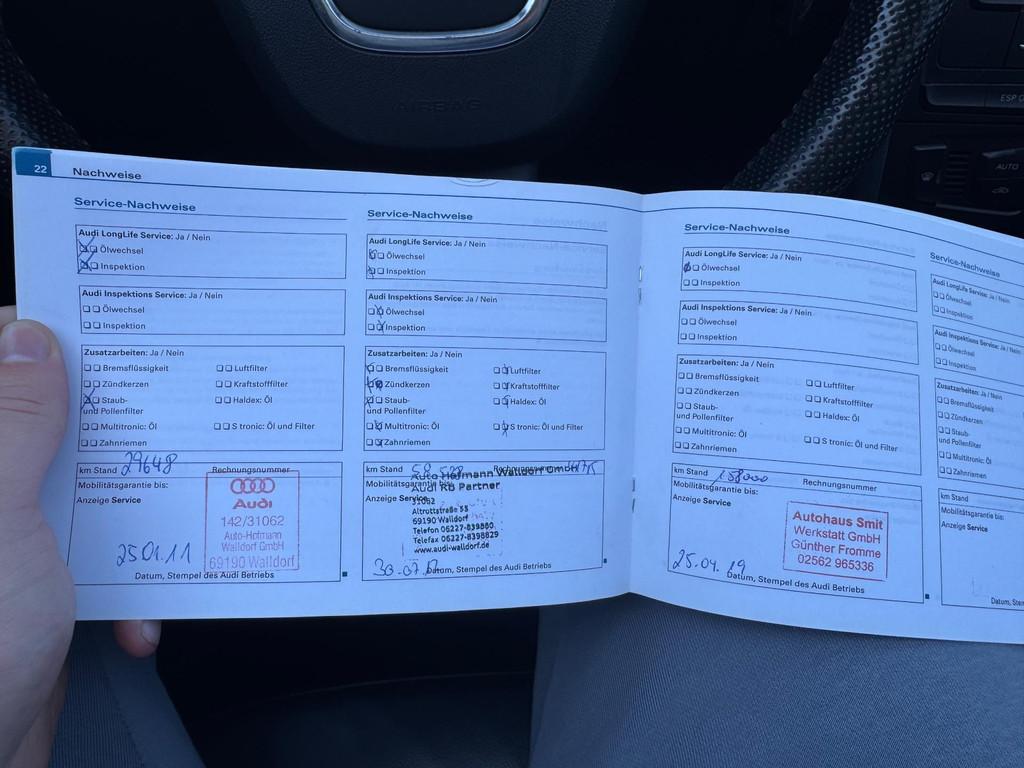 AIRBAG
ESP
AUTO
22 Nachweise
Service-Nachweise
Audi LongLife Service: Ja / Nein
Ölwechsel
Inspektion
Audi Inspektions Service: Ja / Nein
Ölwechsel
Inspektion
Zusatzarbeiten: Ja / Nein
Bremsflüssigkeit Luftfilter
Zündkerzen Kraftstofffilter
Staub- Haldex: Öl
und Pollenfilter
Multitronic: Öl S tronic: Öl und Filter
Zahnriemen
km Stand 29648 Rechnungsnummer
Mobilitätsgarantie bis:
Anzeige Service
Audi
142/31062
Auto-Hofmann
Walldorf GmbH
69190 Walldorf
25.01.11
Datum, Stempel des Audi Betriebs
Service-Nachweise
Audi LongLife Service: Ja / Nein
Ölwechsel
Inspektion
Audi Inspektions Service: Ja / Nein
Ölwechsel
Inspektion
Zusatzarbeiten: Ja / Nein
Bremsflüssigkeit Luftfilter
Zündkerzen Kraftstofffilter
Staub- Haldex: Öl
und Pollenfilter
Multitronic: Öl S tronic: Öl und Filter
Zahnriemen
km Stand Rechnungsnummer
Mobilitätsgarantie bis:
Anzeige Service
Auto Hofmann Walldorf GmbH
Audi Partner
31062
Altrottstraße 55
69190 Walldorf
Telefon 06227-839880
Telefax 06227-8398829
www.audi-walldorf.de
Datum, Stempel des Audi Betriebs
Service-Nachweise
Audi LongLife Service: Ja / Nein
Ölwechsel
Inspektion
Audi Inspektions Service: Ja / Nein
Ölwechsel
Inspektion
Zusatzarbeiten: Ja / Nein
Bremsflüssigkeit Luftfilter
Zündkerzen Kraftstofffilter
Staub- Haldex: Öl
und Pollenfilter
Multitronic: Öl S tronic: Öl und Filter
Zahnriemen
km Stand 158000 Rechnungsnummer
Mobilitätsgarantie bis:
Anzeige Service
Autohaus Smit
Werkstatt GmbH
Günther Fromme
02562 965336
25.04.19
Datum, Stempel des Audi Betriebs
Service-Nachweise
Audi LongLife Service: Ja / Nein
Ölwechsel
Inspektion
Audi Inspektions Service: Ja / Nein
Ölwechsel
Inspektion
Zusatzarbeiten: Ja / Nein
Bremsflüssigkeit
Zündkerzen
Staub-
und Pollenfilter
Multitronic: Öl
Zahnriemen
km Stand
Mobilitätsgarantie bis:
Anzeige Service
Datum, Ste